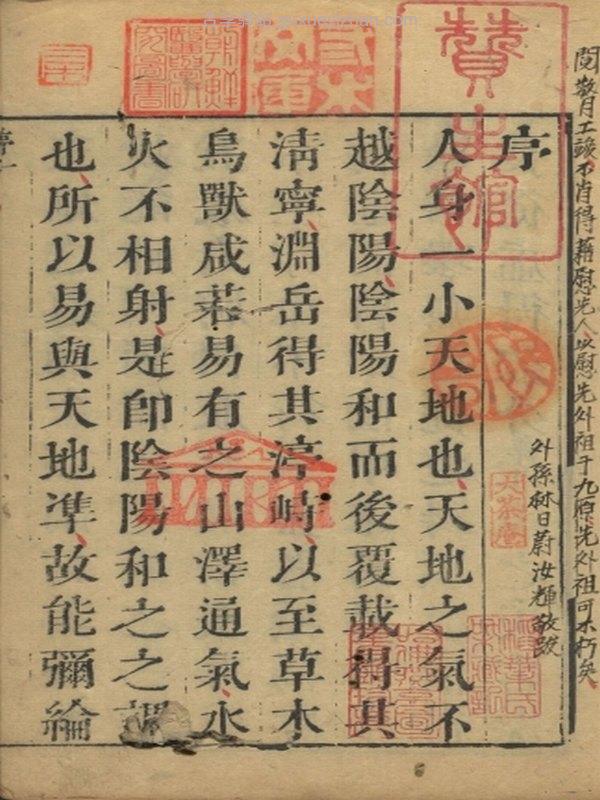 閱數月工竣不肖得藉慰先人以慰先外祖于九原先外祖可不朽矣
外孫林日蔚汝輝敬跋
序
人身一小天地也天地之氣不
越陰陽陰陽和而後覆載得其
清寧淵岳得其渟峙以至草木
鳥獸咸若易有之山澤通氣水
火不相射是卽陰陽和之之謂
也所以易與天地準故能彌綸